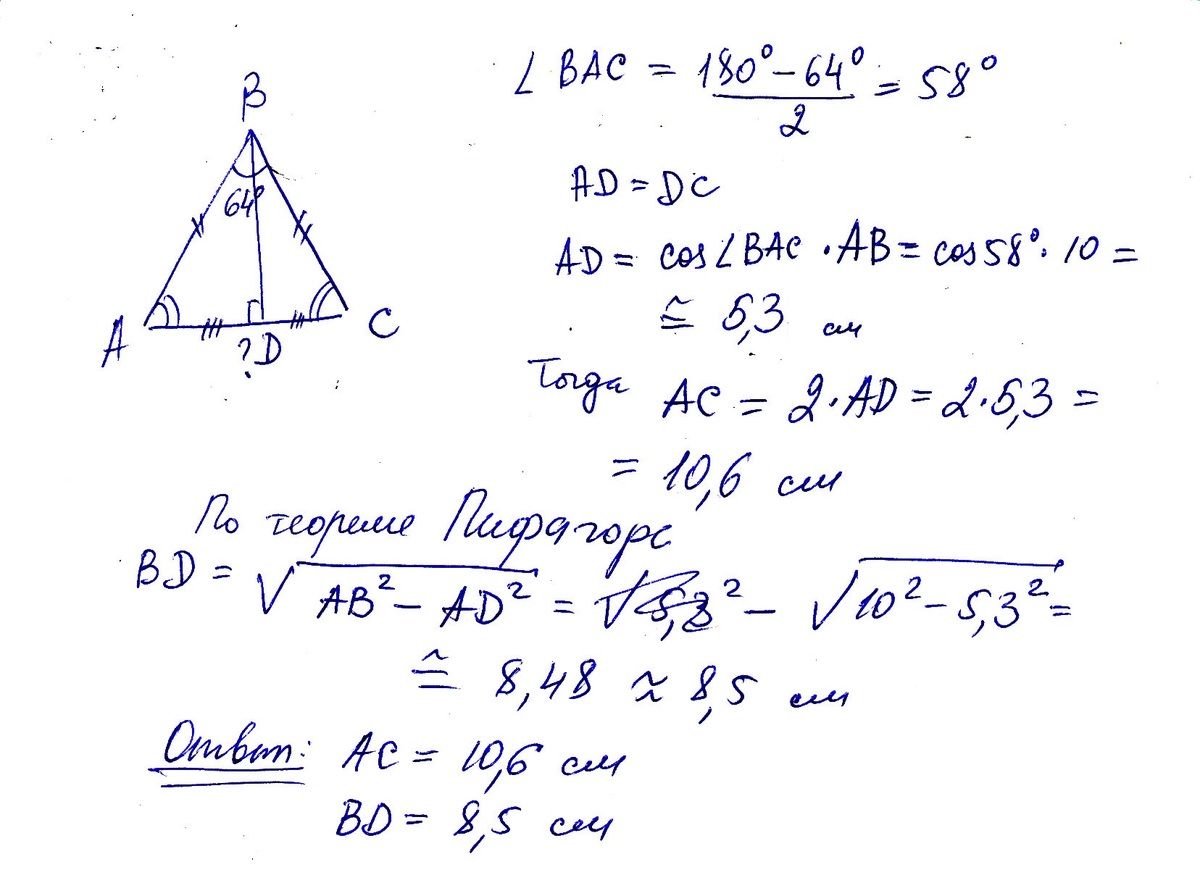 B
64°
A
C
?D
∠ BAC = (180° – 64°)/2 = 58°
AD = DC
AD = cos∠BAC · AB = cos58° · 10 =
≅ 5,3 см
Тогда AC = 2·AD = 2·5,3 =
= 10,6 см
По теореме Пифагора
BD = √(AB² – AD²) = – √(10² – 5,3²) =
≅ 8,48 ≈ 8,5 см
Ответ: AC = 10,6 см
BD = 8,5 см